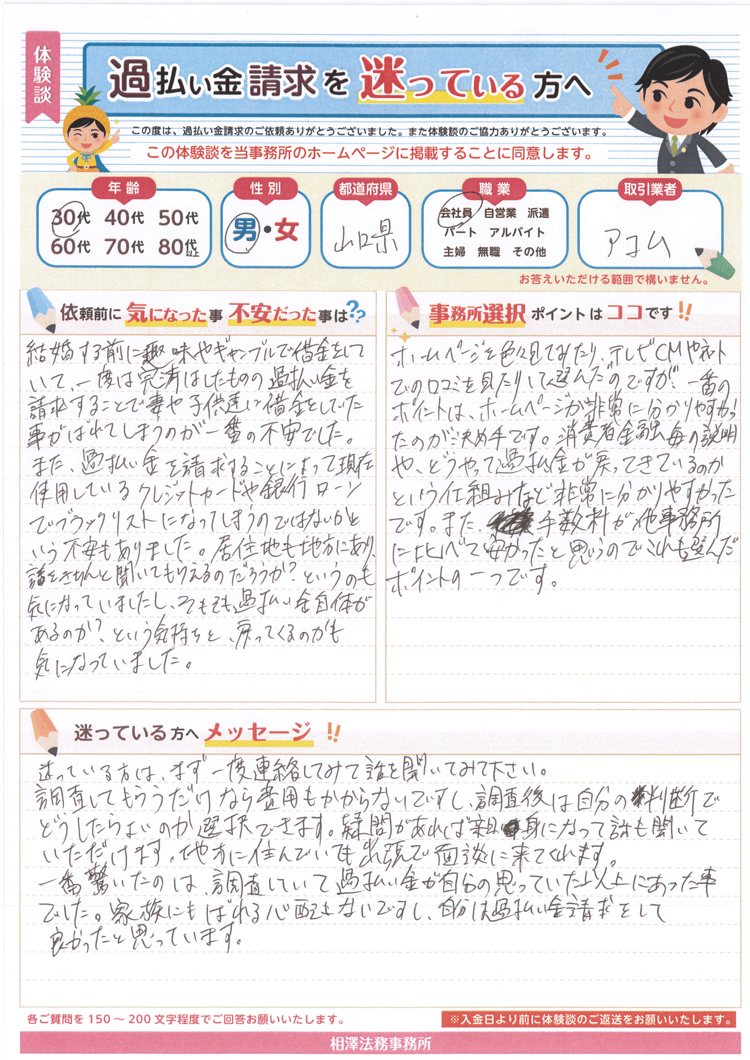 体験談
過払い金請求を迷っている方へ
この度は、過払い金請求のご依頼ありがとうございました。また体験談のご協力ありがとうございます。
この体験談を当事務所のホームページに掲載することに同意します。
年齢
30代 40代 50代
60代 70代 80代以上
性別
男・女
都道府県
山口県
職業
会社員 自営業 派遣
パート アルバイト
主婦 無職 その他
取引業者
アコム
お答えいただける範囲で構いません。
依頼前に気になった事 不安だった事は??
結婚する前に趣味やギャンブルで借金をして
いて、一度は完済はしたものの過払い金を
請求することで妻や子供達に借金をしてた
事がばれてしまうのが一番の不安でした。
また、過払い金を請求することによって現在
使用しているクレジットカードや銀行ローン
でブラックリストになってしまうのではないかと
いう不安もありました。居住地も地方にあり、
話をきちんと聞いてもらえるのだろうか?というのも
気になっていましたし、そもそも過払い金自体が
あるのか?という気持ちと、戻ってくるのかも
気になっていました。
事務所選択ポイントはココです!!
ホームページを色々見てみたり、テレビCMやネット
での口コミを見たりして選んだのですが、一番の
ポイントは、ホームページが非常に分かりやすかっ
たのが決め手です。消費者金融毎の説明
や、どうやって過払金が戻ってきているのか
という仕組みなど非常に分かりやすかった
です。また、手数料が他事務所
に比べて安かったと思うのでこれも選んだ
ポイントの一つです。
迷っている方へメッセージ!!
迷っている方は、まず一度連絡してみて話を聞いてみて下さい。
調査してもらうだけなら費用もかからないですし、調査後は自分の判断で
どうしたらよいのか選択できます。疑問があれば親身になって話も聞いて
いただけます。地方に住んでいても出張で面談に来てくれます。
一番驚いたのは、調査していて過払い金が自分の思っていた以上にあった事
でした。家族にもばれる心配もないですし、自分は過払い金請求をして
良かったと思っています。
各ご質問を150〜200文字程度でご回答お願いいたします。
※入金日より前に体験談のご返送をお願いいたします。
相澤法務事務所